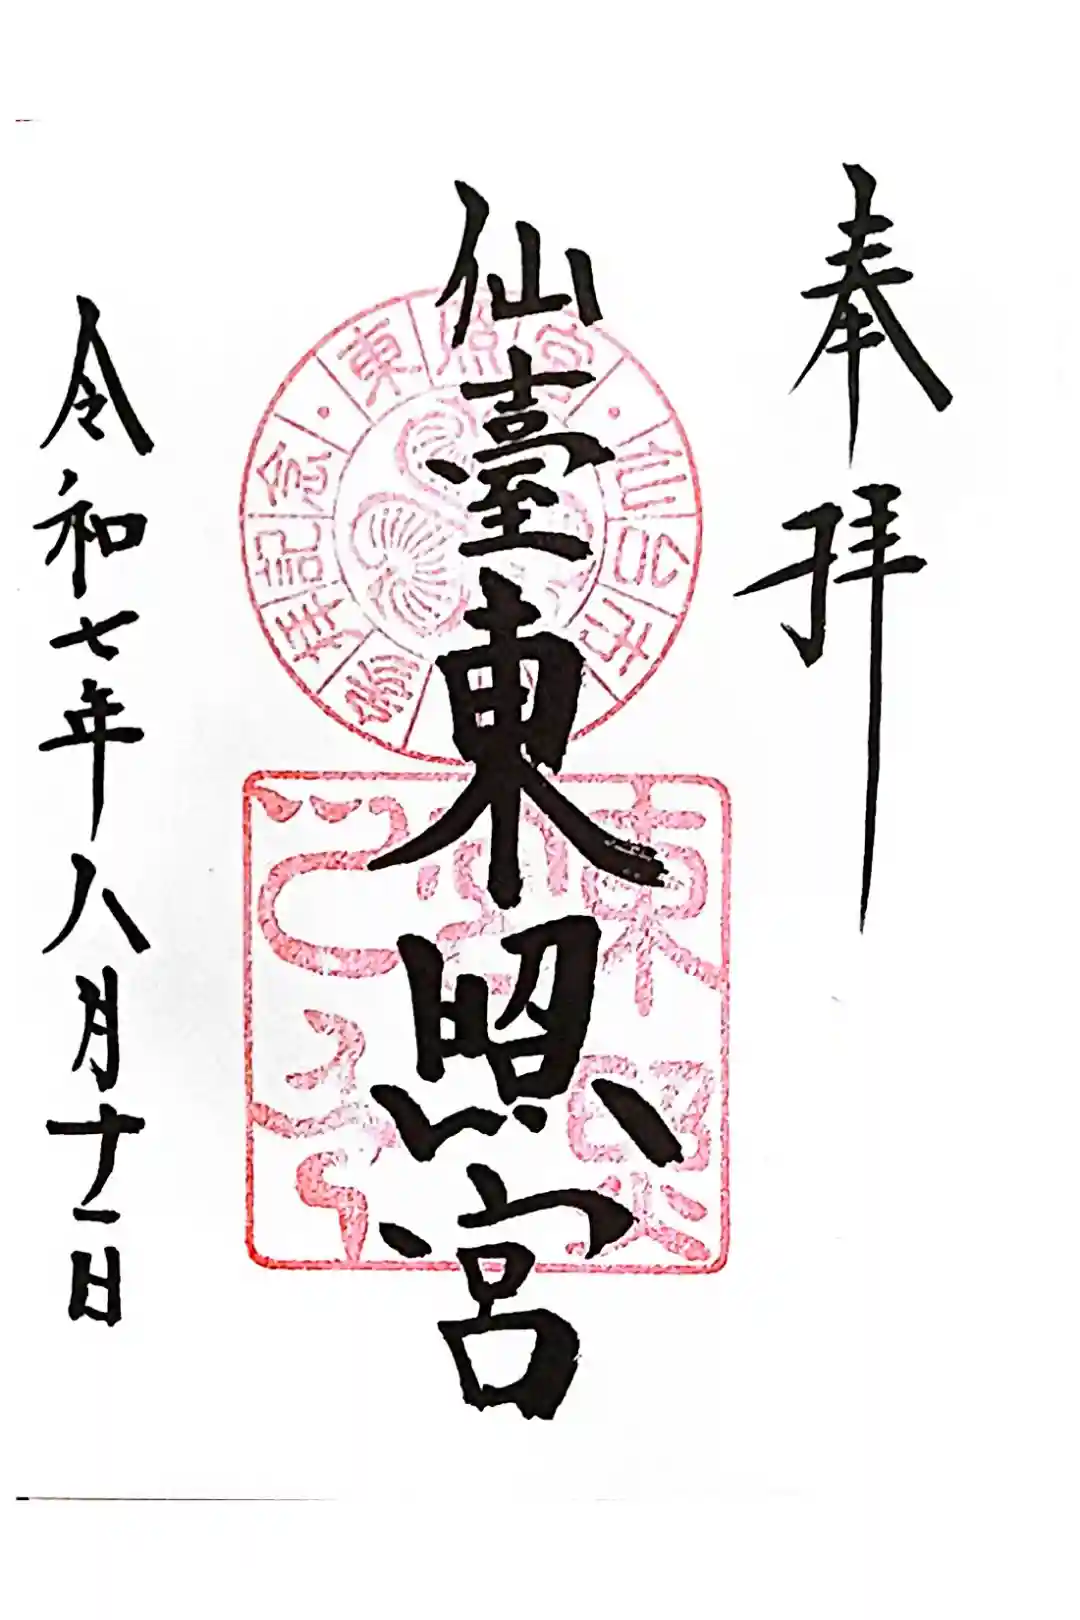 奉拝
仙臺東照宮
令和七年八月十一日
東照宮・仙台市
参拝記念